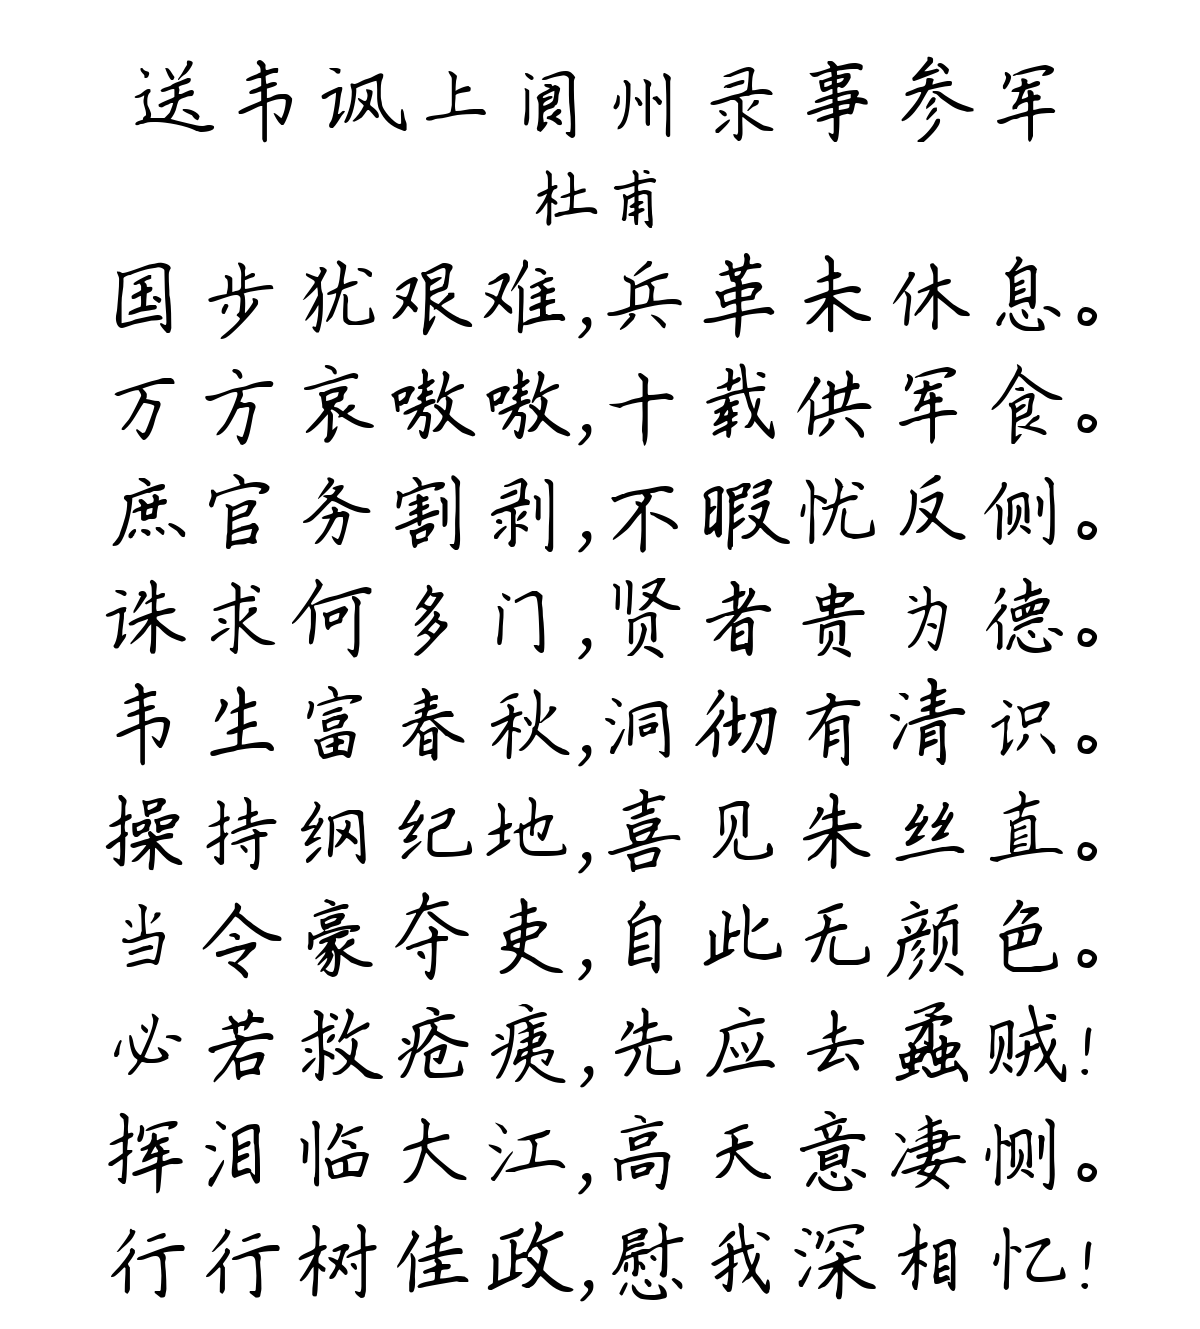 送韦讽上阆州录事参军
杜甫
国步犹艰难,兵革未休息。
万方哀嗷嗷,十载供军食。
庶官务割剥,不暇忧反侧。
诛求何多门,贤者贵为德。
韦生富春秋,洞彻有清识。
操持纲纪地,喜见朱丝直。
当令豪夺吏,自此无颜色。
必若救疮痍,先应去蟊贼!
挥泪临大江,高天意凄恻。
行行树佳政,慰我深相忆!